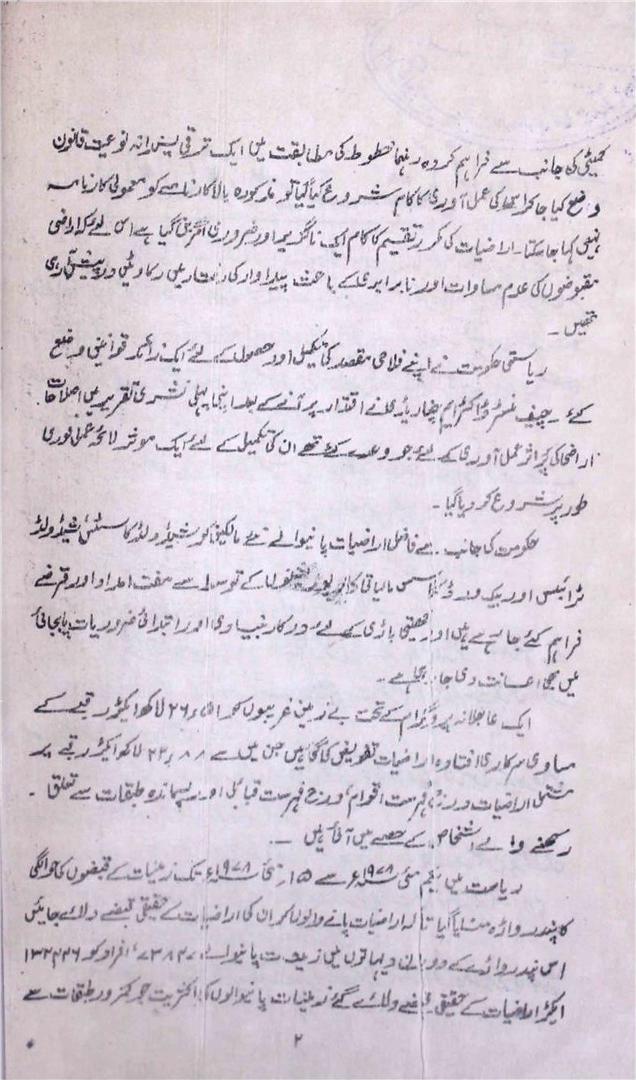 کمیٹی کی جانب سے فراہم کردہ رہنما خطوط کی مطابقت میں ایک ترقی پسندانہ نوعیت قانون
وضع کیا جا کر اسکی عمل آوری کا کام شروع کیا گیا تو مذکورہ بالا کارنامے کو معمولی کارنامہ
نہیں کہا جا سکتا۔ اراضیات کی مکرر تقسیم کا کام ایک ناگزیر اور ضروری امر بن گیا ہے اس لئے کہ اراضی
مقبوضوں کی عدم مساوات اور نا برابری کے باعث پیداوار کی راہ میں رکاوٹیں در پیش آرہی
تھیں۔
ریاستی حکومت نے اپنے فلاحی مقصد کی تکمیل اور حصول کے لئے ایک زائد قوانین وضع
کئے۔ چیف منسٹر ڈاکٹر ایم چنا ریڈی نے اقتدار پر آنے کے بعد اپنی پہلی نشری تقریر میں اصلاحات
اراضی کی پر اثر عمل آوری کے لئے جو وعدے کئے تھے ان کی تکمیل کے لئے ایک موثر لائحہ عمل فوری
طور پر شروع کر دیا گیا۔
حکومت کی جانب سے فاضل اراضیات پانیوالے نئے مالکین کو شیڈولڈ کاسٹس شیڈولڈ
ٹرائبس اور بیک ورڈ کلاسس مالیاتی کارپوریشنوں کے توسط سے مفت امداد اور قرضے
فراہم کئے جا رہے ہیں اور کھیتی باڑی کے لئے درکار بنیادی اور ابتدائی ضروریات پابجائی
میں بھی اعانت دی جا رہی ہے۔
ایک عاجلانہ پروگرام کے تحت بے زمین غریبوں کو لاکھ ایکڑ رقبے کے
مساوی سرکاری افتادہ اراضیات تفویض کی گئی ہیں جن میں سے لاکھ ایکڑ رقبے پر
مشتمل اراضیات درج فہرست اقوام، درج فہرست قبائل اور پسماندہ طبقات سے تعلق
رکھنے والے اشخاص کے حصے میں آئی ہیں۔
ریاست میں یکم مئی ۱۹۷۸ء سے ۱۵ مئی ۱۹۷۸ء تک زمینات کے قبضوں کی حوالگی
کا پندرواڑہ منایا گیا تاکہ اراضیات پانے والوں کو ان کی اراضیات کے حقیقی قبضے دلائے جائیں
اس پندرواڑے کے دوران دیہاتوں میں زمینات پانیوالے افراد کو ۱۳۲۴۲۶
ایکڑ اراضیات کے حقیقی قبضے دلائے گئے زمینات پانیوالوں کی اکثریت جو کمزور طبقات سے
۲